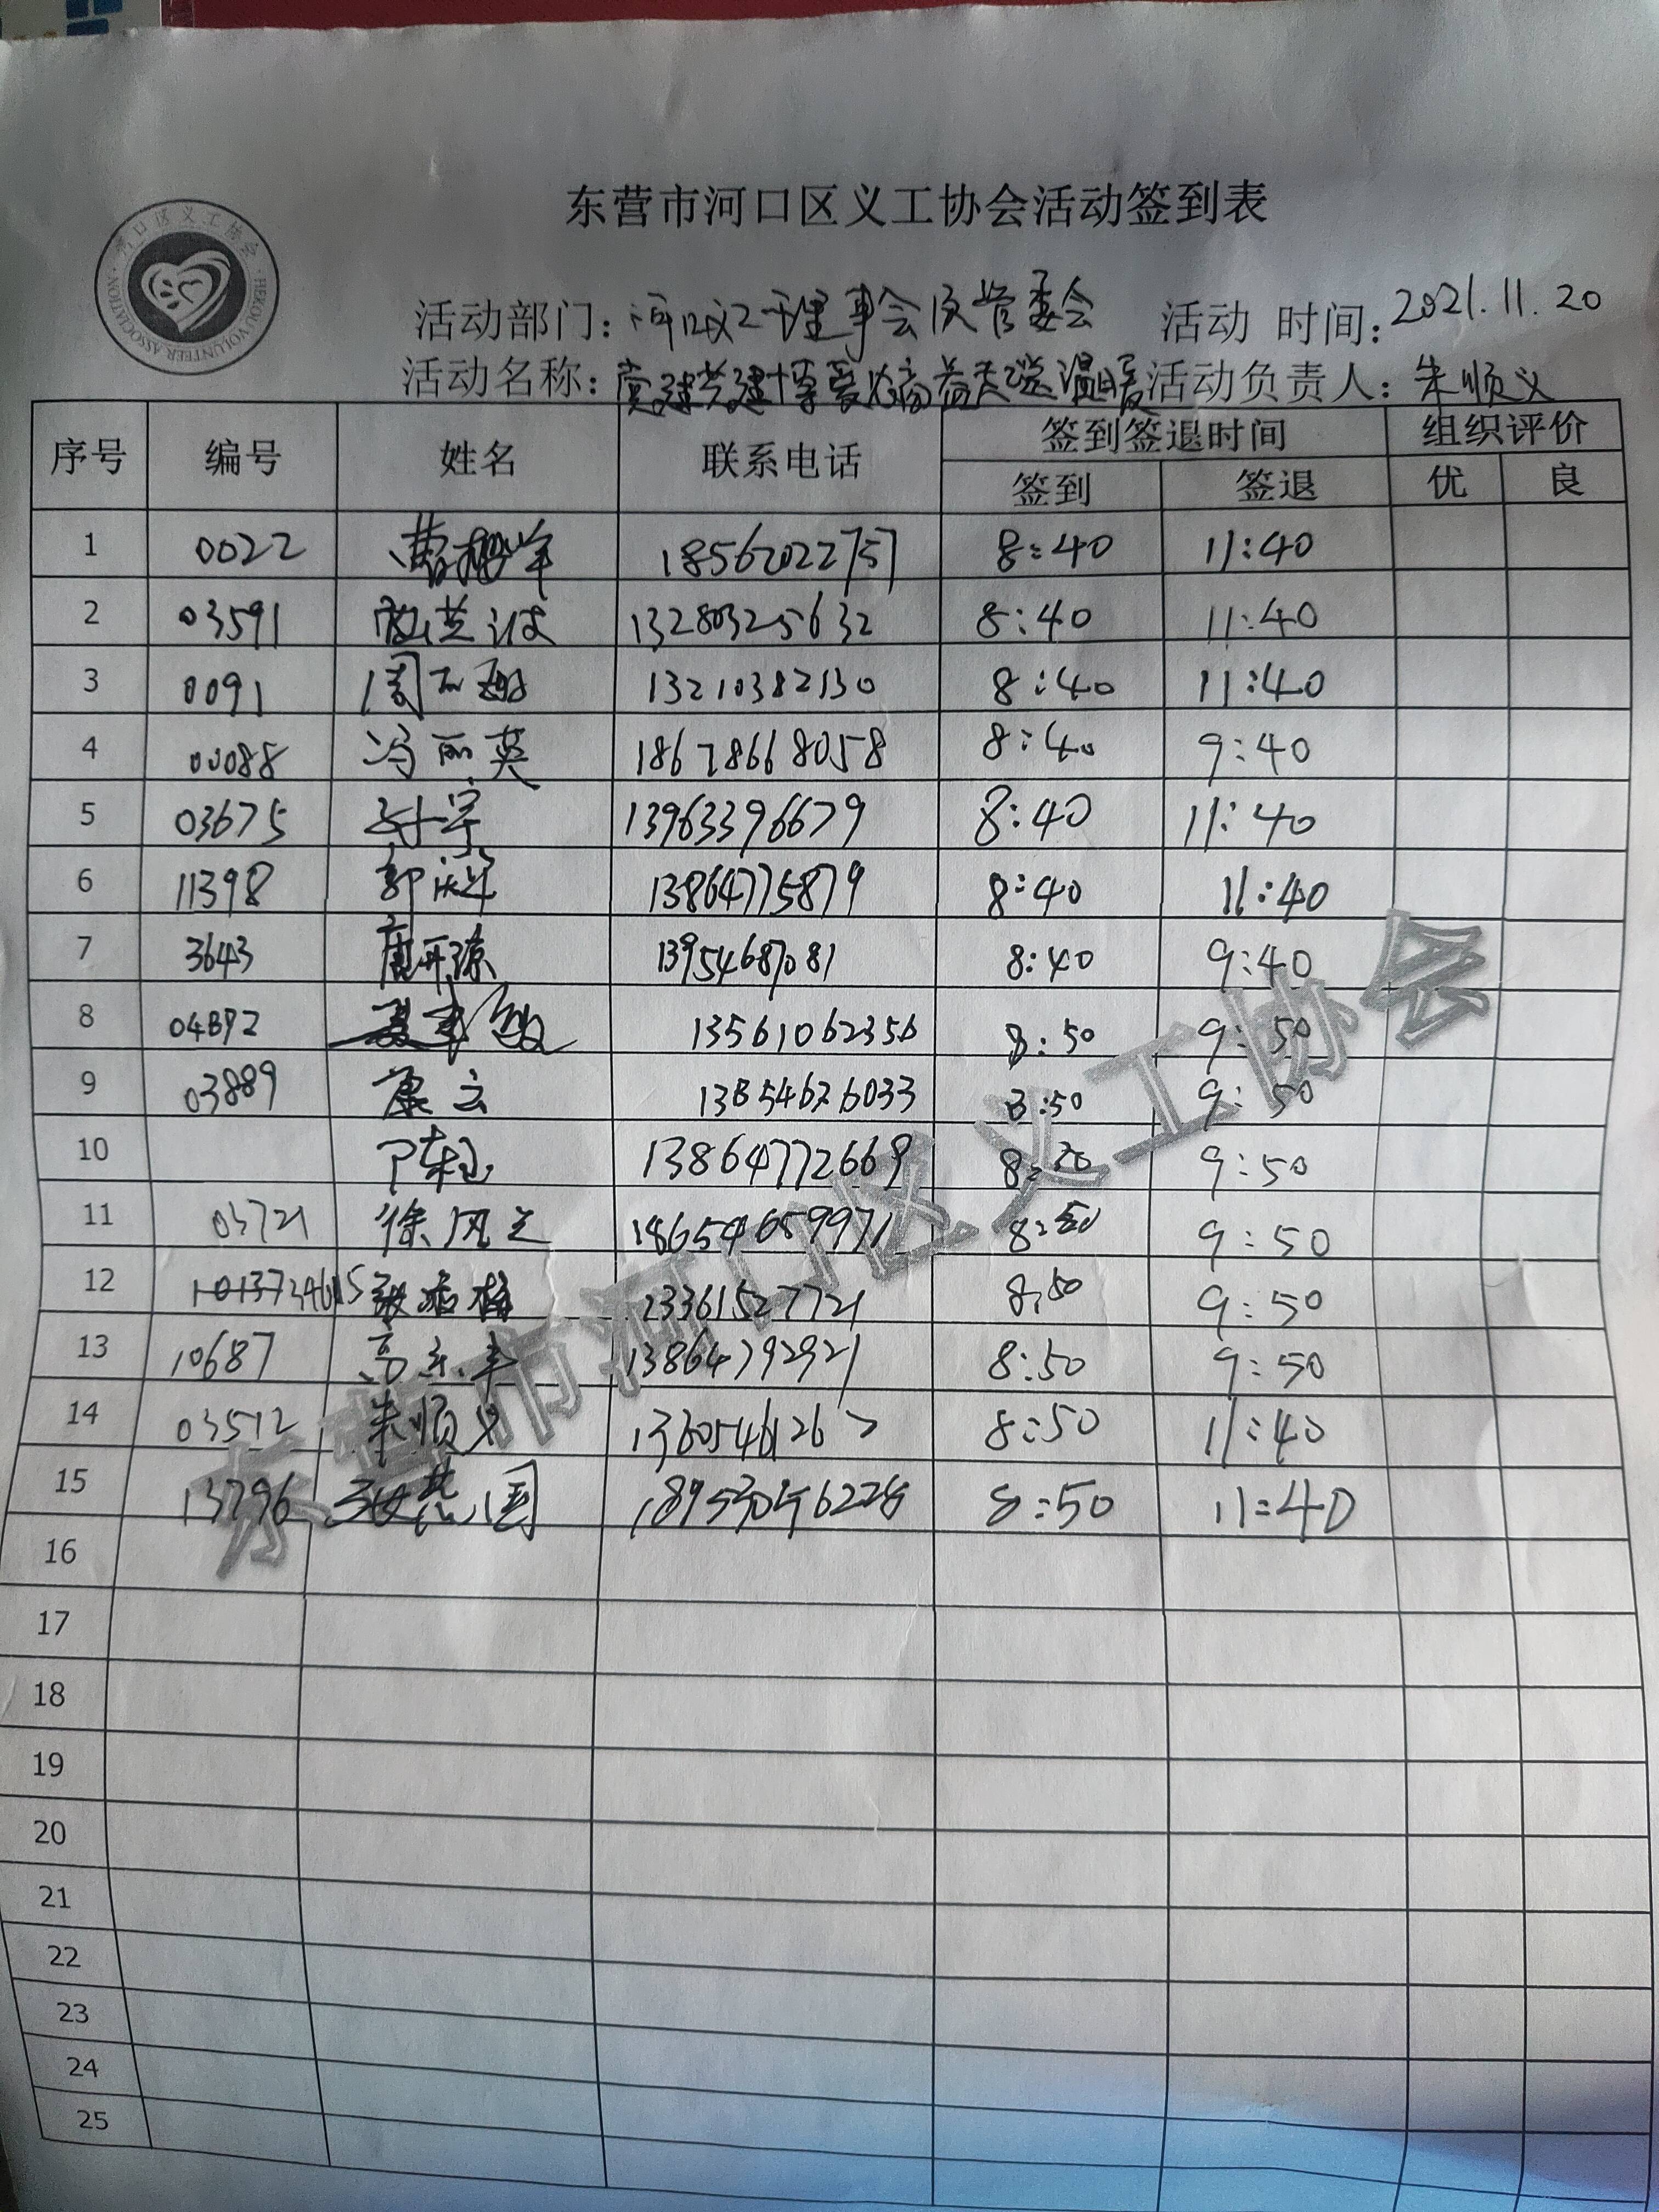 河口区义工协会
HEKOU VOLUNTEER ASSOCIATION
东营市河口区义工协会活动签到表
活动部门：河口义工理事会及管委会 活动 时间：2021.11.20
活动名称：党建共建博爱 送温暖 活动负责人：朱顺义
序号 编号 姓名 联系电话 签到签退时间 组织评价
签到 签退 优 良
1 0022 18562022757 8:40 11:40
2 03591 13280325632 8:40 11:40
3 0091 周 13210382130 8:40 11:40
4 00088 冯丽英 18678668058 8:40 9:40
5 03675 孙宇 13963396679 8:40 11:40
6 11398 郭 13864775879 8:40 11:40
7 3643 13954687081 8:40 9:40
8 敏 13561062356 8:50 9:50
9 03889 康云 13854626033 8:50 9:50
10 13864772669 9:50
11 03721 徐风之 18654659971 8:50 9:50
12 13361527721 8:50 9:50
13 10687 高 13864792921 8:50 9:50
14 03512 朱顺义 13605461267 8:50 11:40
15 13796 国 8:50 11:40
16
17
18
19
20
21
22
23
24
25
东营市河口区义工协会